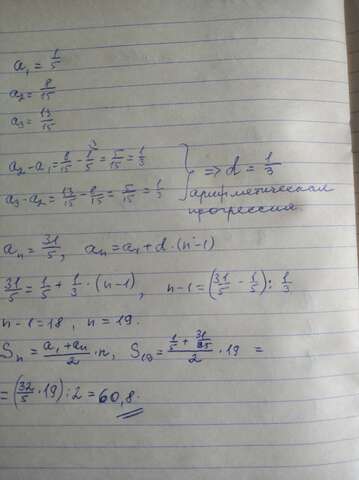 a₁ = 1/5
a₂ = 8/15
a₃ = 13/15
a₂ - a₁ = 8/15 - 1/5 = 5/15 = 1/3
a₃ - a₂ = 13/15 - 8/15 = 5/15 = 1/3
=> d = 1/3
арифметическая
прогрессия.
aₙ = 31/5, aₙ = a₁ + d · (n - 1)
31/5 = 1/5 + 1/3 · (n - 1), n - 1 = (31/5 - 1/5) : 1/3
n - 1 = 18, n = 19.
Sₙ = (a₁ + aₙ)/2 · n, S₁₉ = (1/5 + 31/5)/2 · 19 =
= (32/5 · 19) : 2 = 60,8.